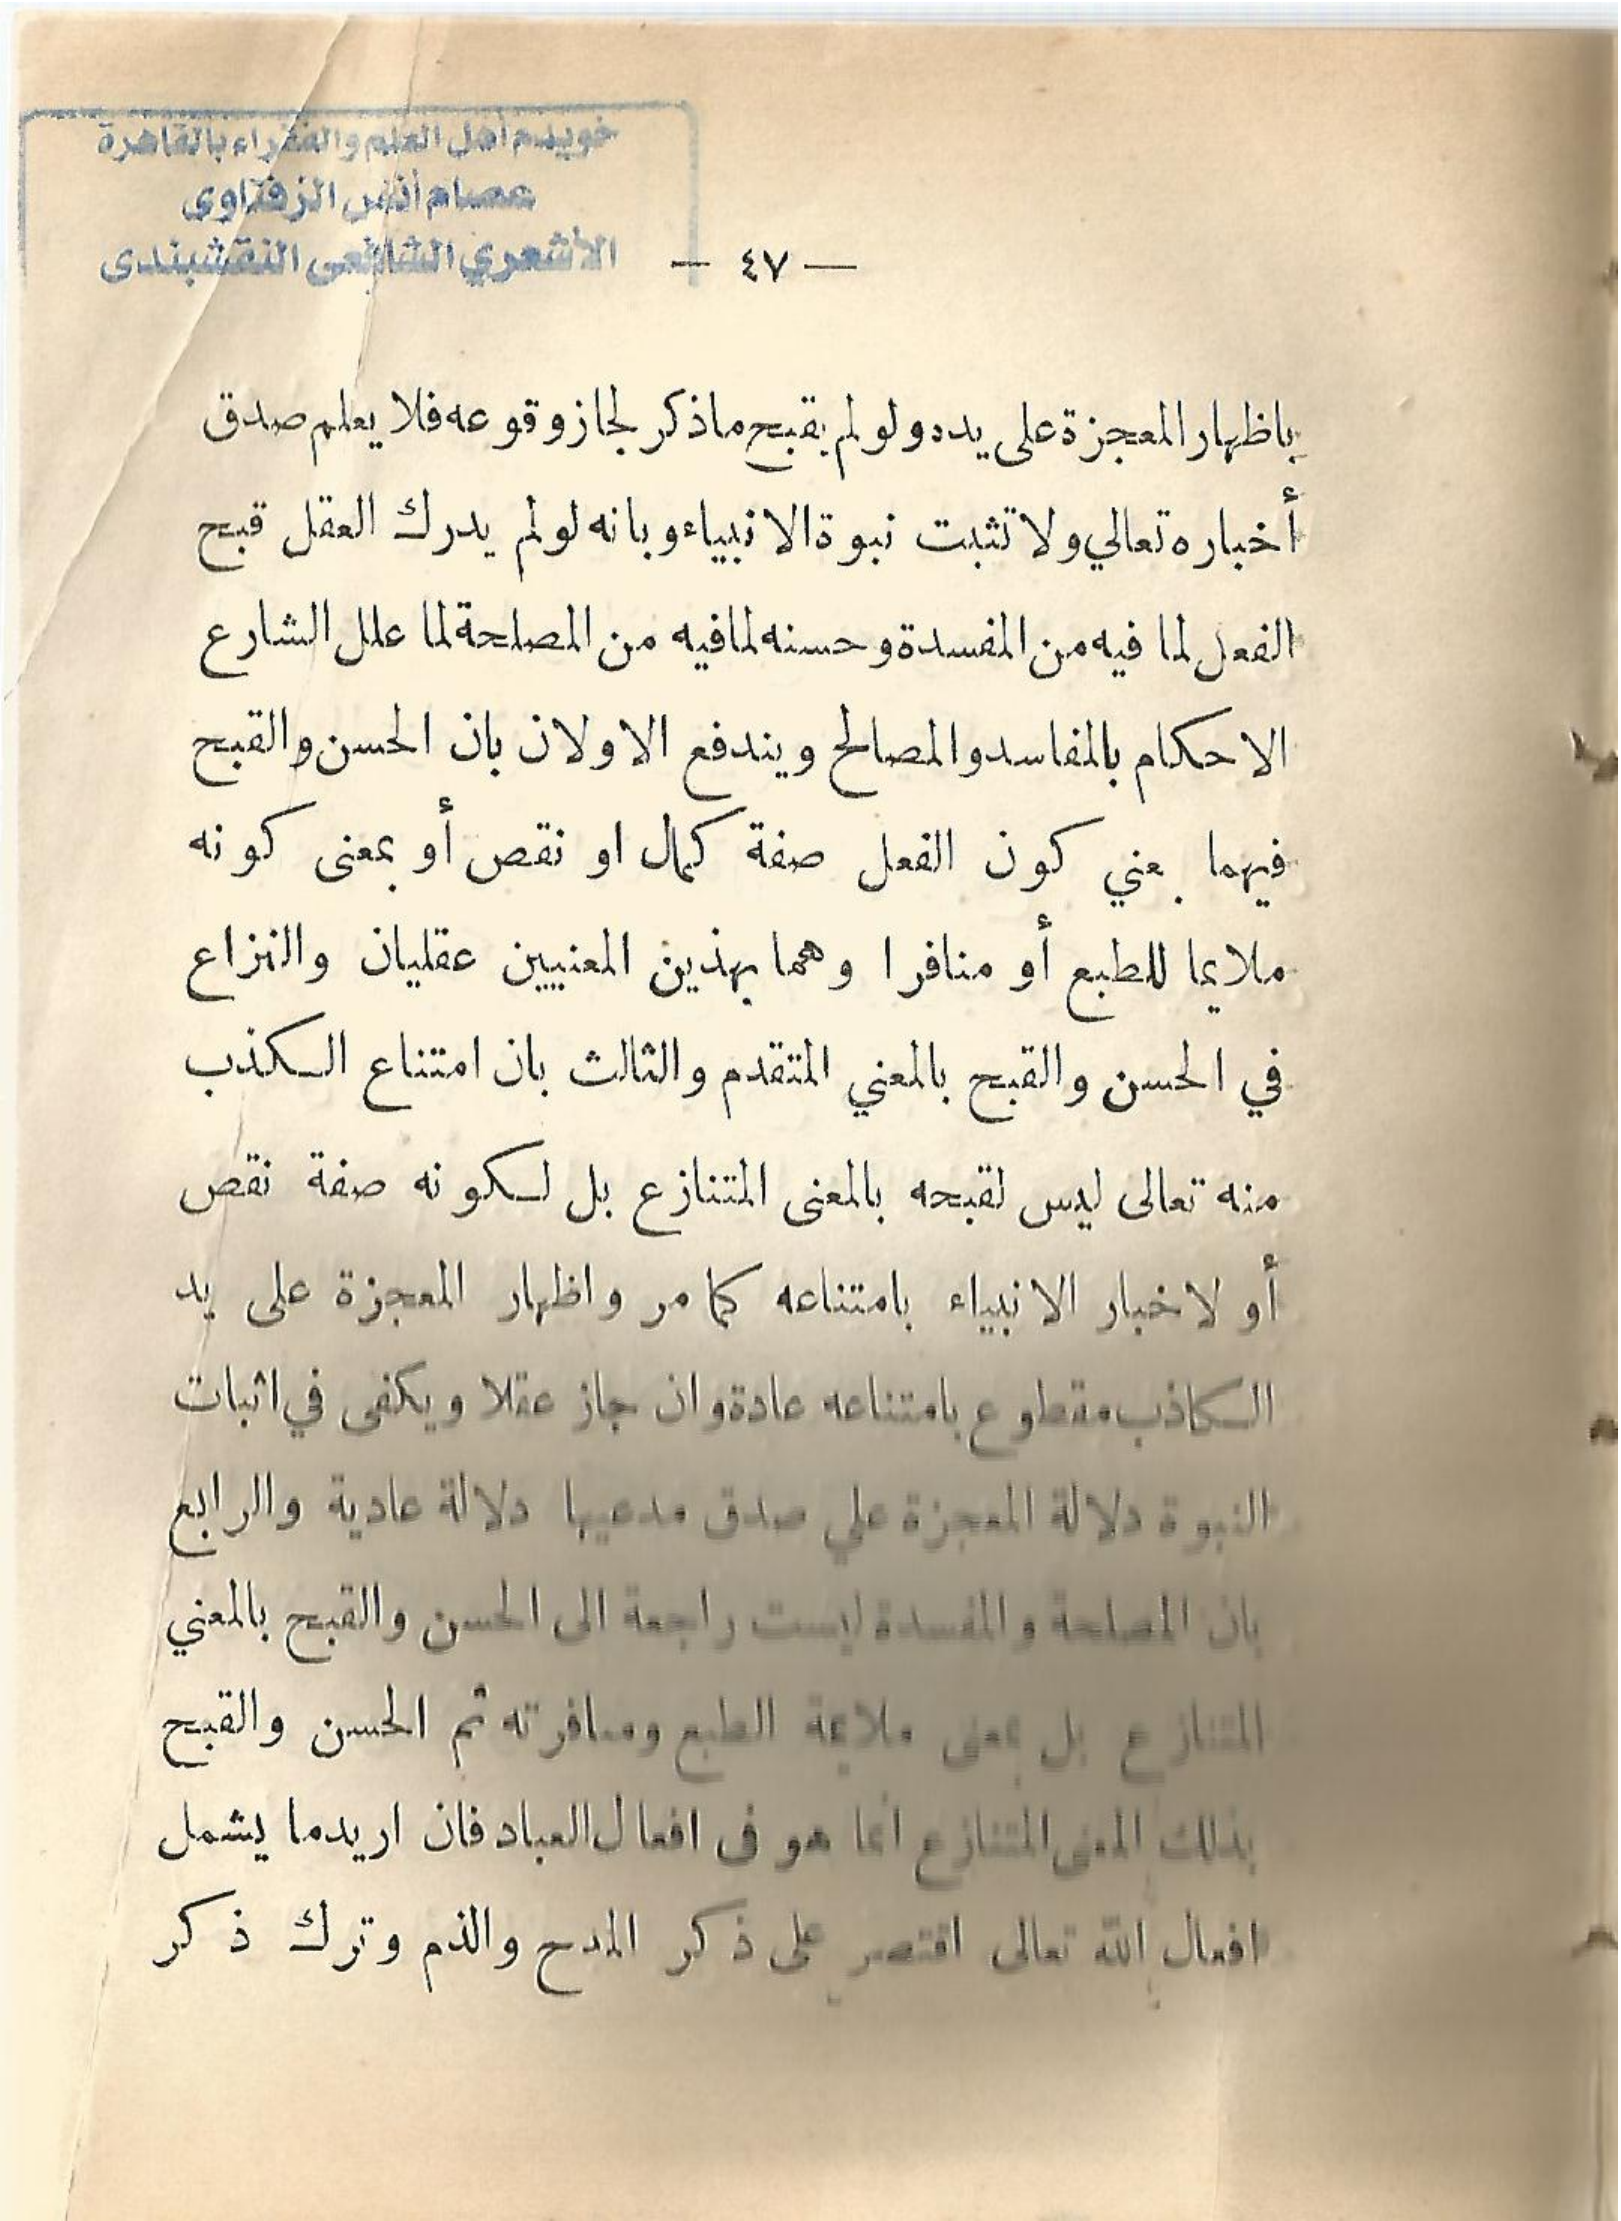 خويدم أهل العلم والفقراء بالقاهرة
عصام أنس الزفتاوى
الأشعري الشافعى النقشبندى
— ٤٧ —
باظهار المعجزة على يده ولو لم يقبح ماذكر لجاز وقوعه فلا يعلم صدق
أخباره تعالي ولا تثبت نبوة الانبياء وبانه لو لم يدرك العقل قبح
الفعل لما فيه من المفسدة وحسنه لما فيه من المصلحة لما علل الشارع
الاحكام بالمفاسد والمصالح ويندفع الاولان بان الحسن والقبح
فيهما بمعني كون الفعل صفة كمال او نقص أو بمعنى كونه
ملايما للطبع أو منافرا وهما بهذين المعنيين عقليان والنزاع
في الحسن والقبح بالمعني المتقدم والثالث بان امتناع الكذب
منه تعالى ليس لقبحه بالمعنى المتنازع بل لكونه صفة نقص
أو لاخبار الانبياء بامتناعه كما مر واظهار المعجزة على يد
الكاذب مقطوع بامتناعه عادة وان جاز عقلا ويكفى في اثبات
النبوة دلالة المعجزة علي صدق مدعيها دلالة عادية والرابع
بان المصلحة والمفسدة ليست راجعة الى الحسن والقبح بالمعني
المتنازع بل بمعنى ملايمة الطبع ومنافرته ثم الحسن والقبح
بذلك المعنى المتنازع انما هو فى افعال العباد فان اريد ما يشمل
افعال الله تعالى اقتصر على ذكر المدح والذم وترك ذكر